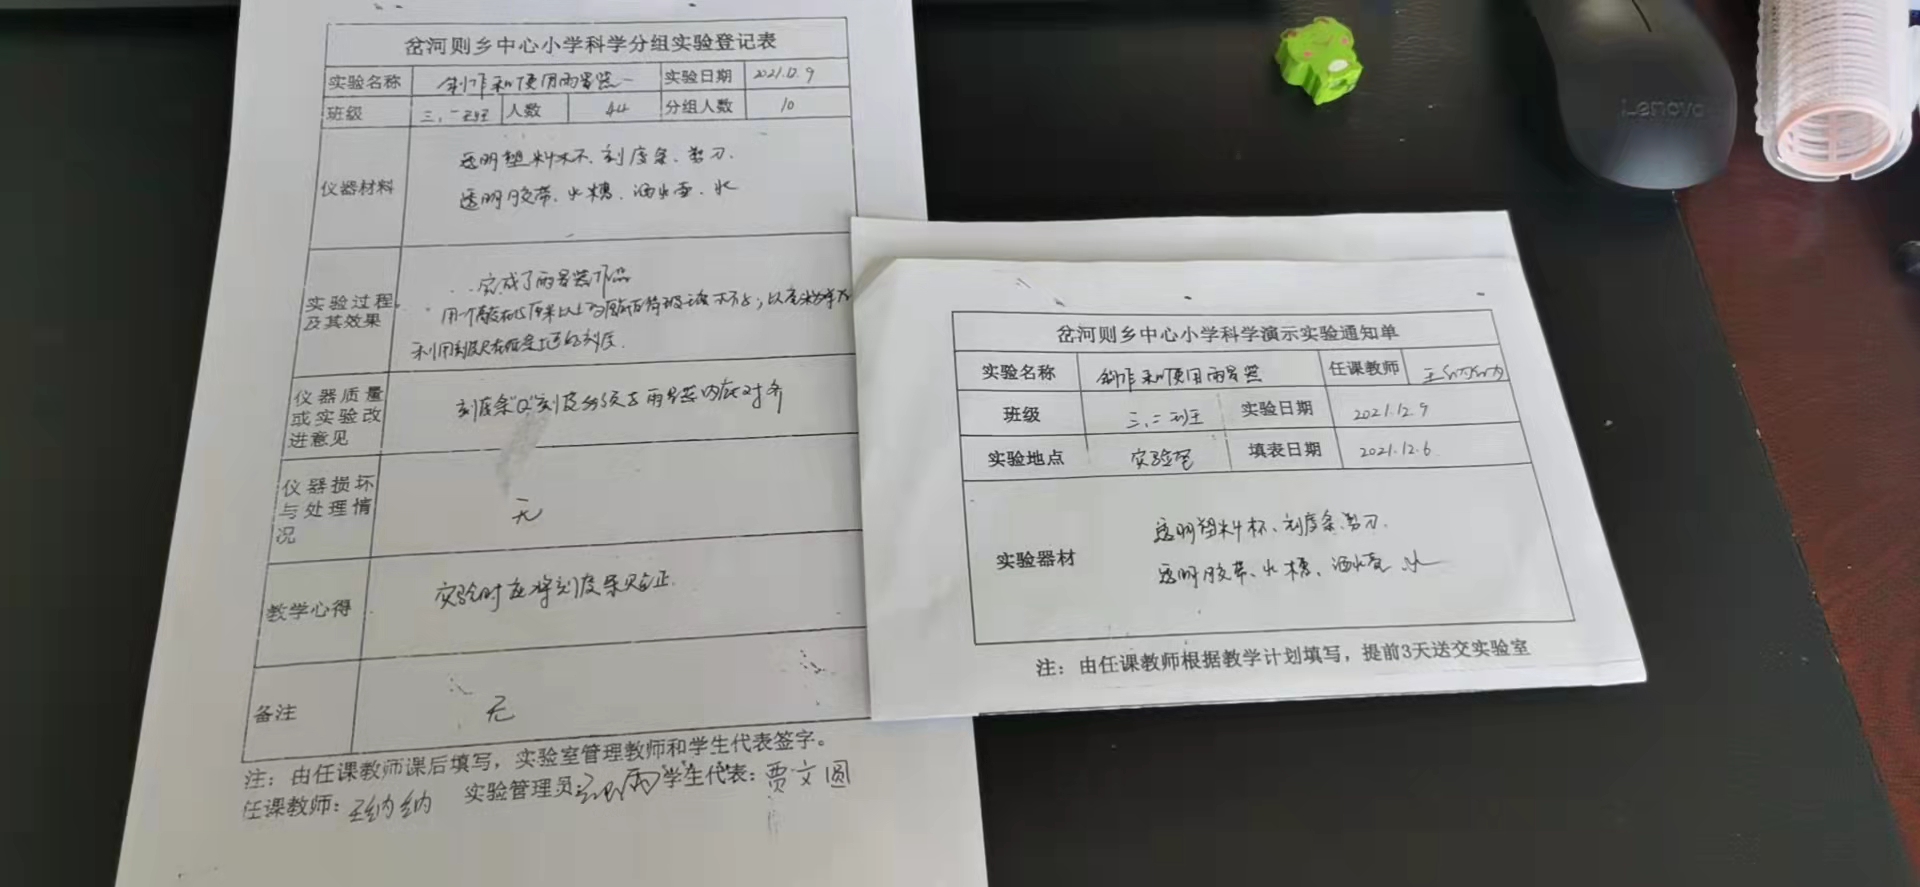 岔河则乡中心小学科学分组实验登记表
实验名称 制作和使用雨量器 实验日期 2021.12.9
班级 三、二班 人数 44 分组人数 10
仪器材料
透明塑料杯、刻度条、剪刀、
透明胶带、水槽、洒水壶、水
实验过程及其效果
完成了雨量器作品
仪器质量或实验改进意见
刻度条"0"刻度
仪器损坏与处理情况
无
教学心得
实验时应将刻度条贴正.
备注
无
注：由任课教师课后填写，实验室管理教师和学生代表签字。
任课教师：王纳纳 实验管理员 学生代表：贾文圆
岔河则乡中心小学科学演示实验通知单
实验名称 制作和使用雨量器 任课教师 王纳纳
班级 三、二班 实验日期 2021.12.9
实验地点 实验室 填表日期 2021.12.6
实验器材
透明塑料杯、刻度条、剪刀、
透明胶带、水槽、洒水壶、水
注：由任课教师根据教学计划填写，提前3天送交实验室
Lenovo